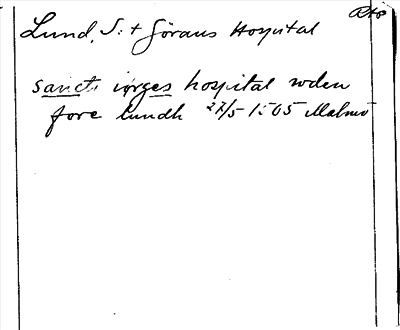 Lund, S:t Görans Hospital
sancti iørges hospital uden
fore lundh 27/5 1505 Malmö